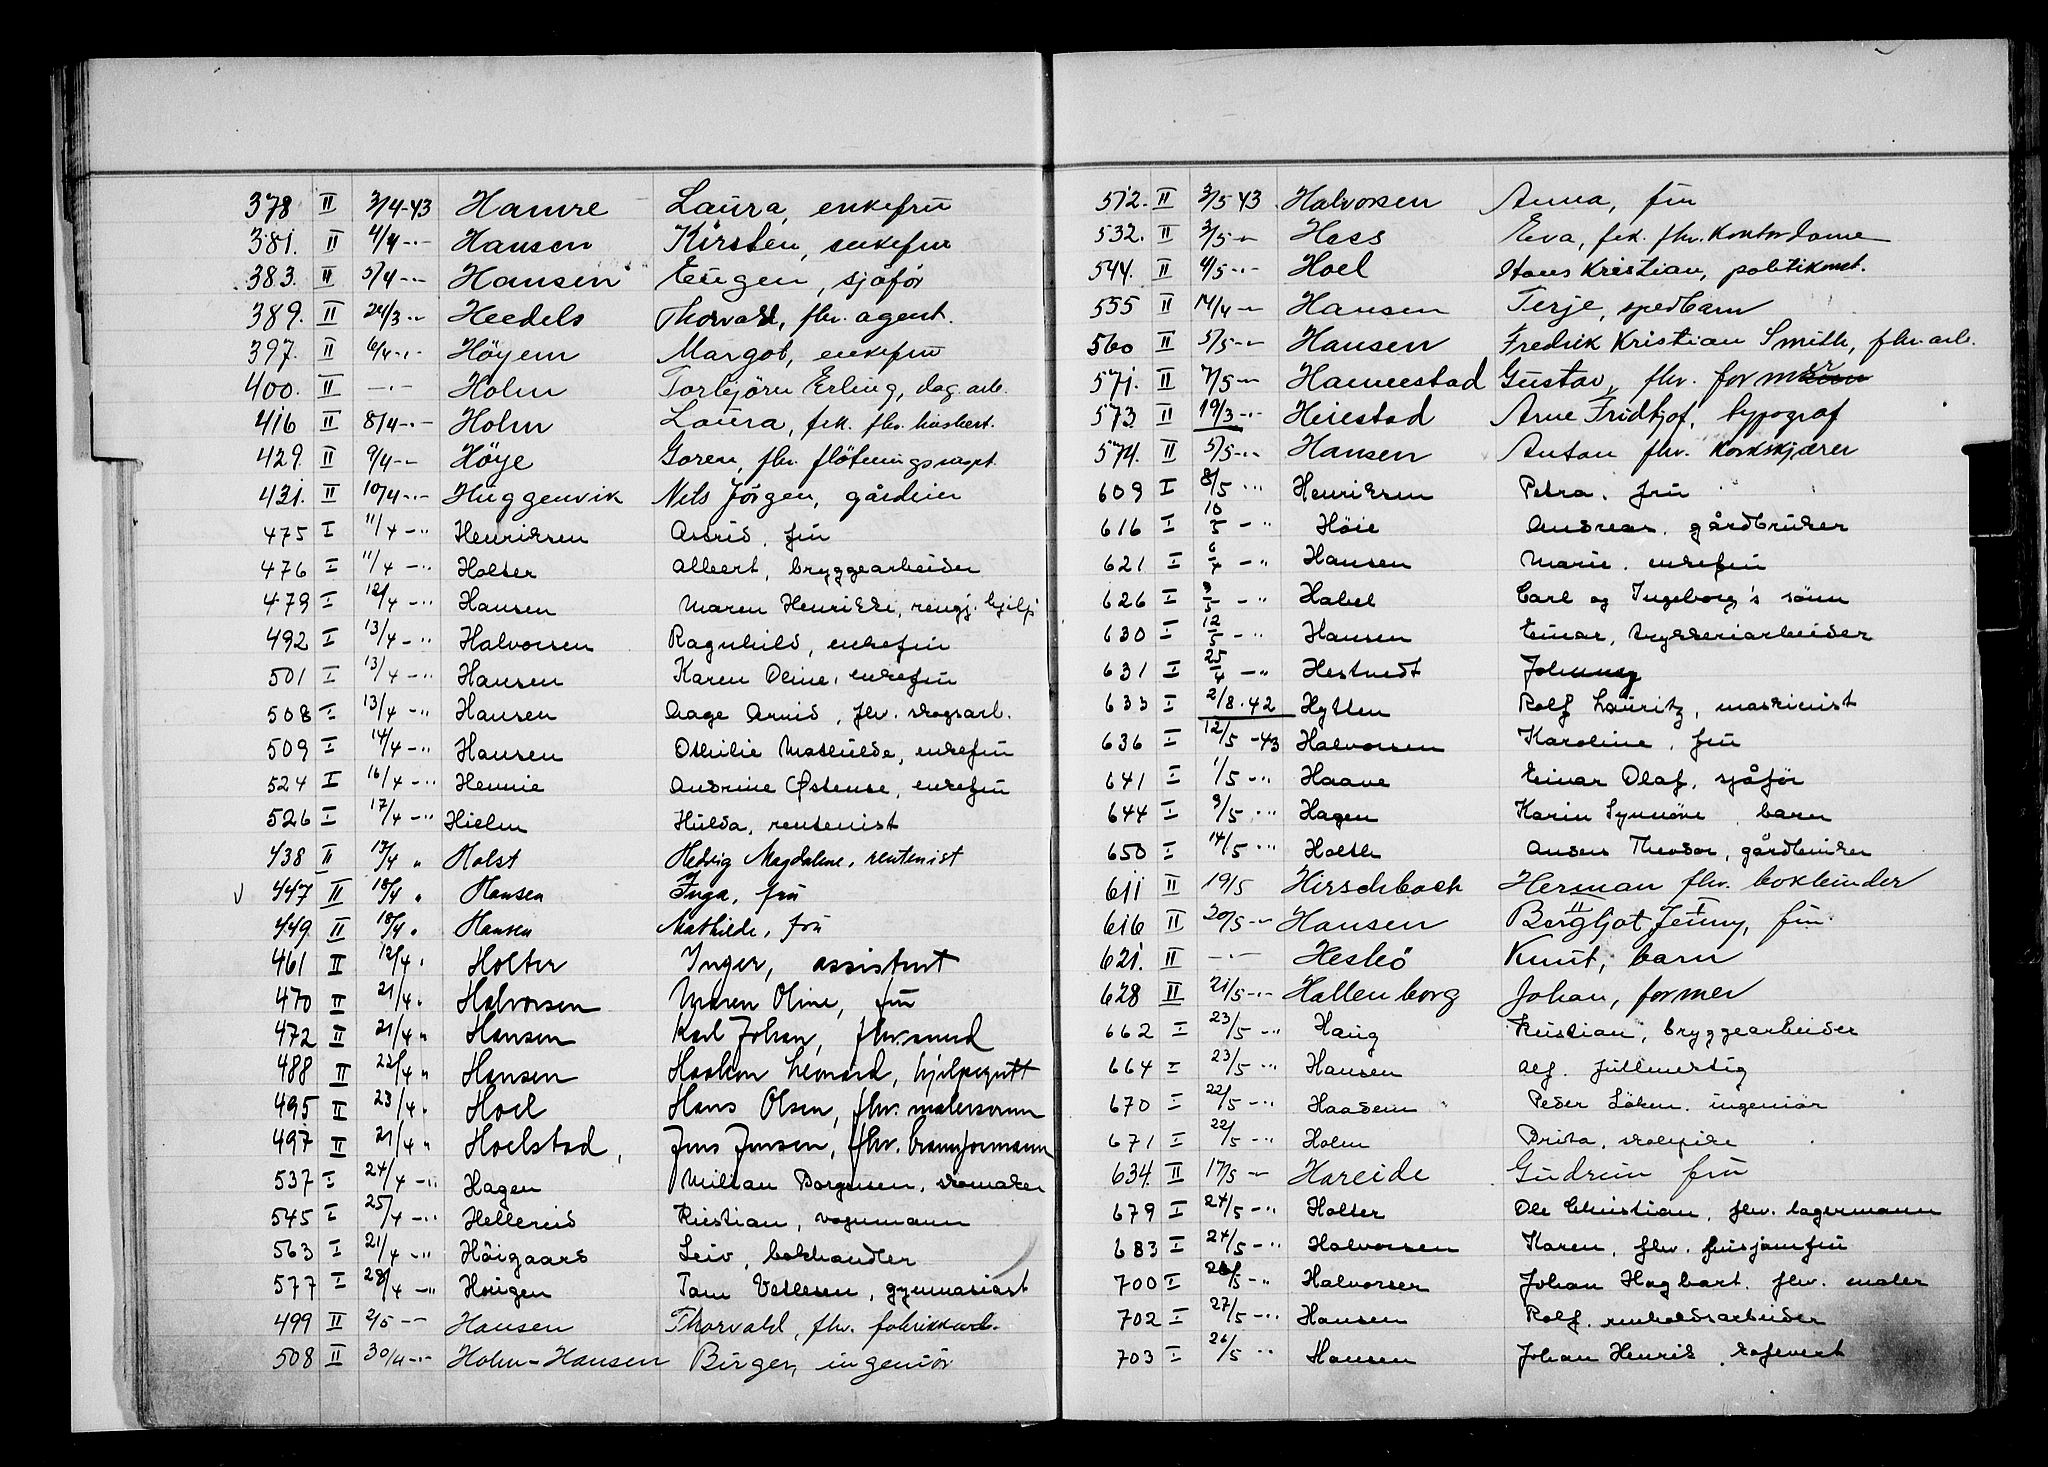 378 II 3/4-43 Hamre Laura, enkefru
381. II 4/4 -"- Hansen Kirsten, enkefru
383. II 5/4 -"- Hansen Eugen, sjåför
389. II 24/3 -"- Heedels Thorvald, fhv. agent.
397. II 6/4 -"- Höyem Margot, enkefru
400. II -"- Holm Torbjörn Erling, dag. arb.
416 II 8/4 -"- Holm Laura, frk. fhv. husbest.
429. II 9/4 -"- Höye Goren, fhv. flötningsinspt.
431. II 10/4 -"- Huggenvik Nils Jörgen, gårdeier
475 I 11/4 -"- Henriksen Astrid, fru
476 I 11/4 -"- Holter Albert, bryggearbeider
479 I 12/4 -"- Hansen Maren Henrikke, rengj. hjelp
492 I 13/4 -"- Halvorsen Ragnhild, enkefru
501 I 13/4 -"- Hansen Karen Oline, enkefru
508 I 13/4 -"- Hansen Aage Arvid, fhv. skogsarb.
509 I 14/4 -"- Hansen Othilie Mathilde, enkefru
524 I 16/4 -"- Hennie Andrine Østense, enkefru
526 I 17/4 -"- Hielm Hulda, rentenist
438 II 17/4 " Holst Hedvig Magdalene, rentenist
v 447 II 18/4 " Hansen Inga, fru
449 II 18/4 " Hansen Mathilde, fru
461 II 12/4 " Holter Inger, assistent
470 II 21/4 " Halvorsen Maren Oline, fru
472 II 21/4 " Hansen Karl Johan, fhv. smed
488 II 22/4 " Hansen Haakon Leonard, hjelpegutt
495 II 23/4 " Hoel Hans Olsen, fhv. malersvenn
497 II 21/4 " Hoelstad, Jens Jensen, fhv. brannformann
537 I 24/4 -"- Hagen Milian Borgersen, skomaker
545 I 25/4 -"- Hellereid Kristian, vognmann
563 I 21/4 -"- Höigaard Leiv, bokhandler
577 I 28/4 -"- Horgen Tom Vetlesen, gymnasiast
499 II 2/5 -"- Hansen Thorvald, fhv. fabrikkarb.
508 II 30/4 -"- Holm-Hansen Birger, ingeniör
512. II 3/5 43 Halvorsen Anna, fru
532. II 3/5 -"- Hess Eva, frk. fhv. kontordame
544. II 4/5 -"- Hoel Hans Kristian, politikonst.
555 II 14/4 -"- Hansen Terje, spedbarn
560 II 5/5 -"- Hansen Fredrik Kristian Smith, fhv. arb.
571. II 7/5 -"- Hannestad Gustav, fhv. former
573 II 19/3 -"- Heiestad Arne Fridtjof, typograf
574. II 5/5 -"- Hansen Anton fhv. korkskjærer
609 I 8/5 -"- Henriksen Petra, fru
616 I 10/5 -"- Höie Andreas, gårdbruker
621 I 6/4 -"- Hansen Marie, enkefru
626 I 9/5 -"- Habel Carl og Ingeborg's sönn
630 I 12/5 -"- Hansen Einar, trykkeriarbeider
631 I 25/4 -"- Hestvedt Johnny
633 I 2/8.42 Hytten Rolf Lauritz, maskinist
636 I 12/5 -43 Halvorsen Karoline, fru
641 I 1/5 -"- Haave Einar Olaf, sjåför
644 I 9/5 -"- Hagen Karin Synnöve, barn
650 I 14/5 -"- Holth Anders Theodor, gårdbruker
611 II 19/5 Hirschbach Herman fhv. bokbinder
616 II 20/5 -"- Hansen Bergljot Jenny, fru
621. II -"- Heskö Knut, barn
628 II 21/5 -"- Hallenborg Johan, former
662 I 23/5 -"- Haug Kristian, bryggearbeider
664 I 23/5 -"- Hansen Alf, fullmektig
670 I 22/5 -"- Haadem Peder Löken, ingeniör
671 I 22/5 -"- Holm Brita, skolepike
634. II 17/5 -"- Hareide Gudrun fru
679 I 24/5 -"- Holter Ole Christian, fhv. lagermann
683 I 24/5 -"- Halvorsen Karen, fhv. husjomfru
700 I 26/5 -"- Halvorsen Johan Hagbart, fhv. maler
702 I 27/5 -"- Hansen Rolf, renholdsarbeider
703 I 26/5 " Hansen Johan Henrik, kafevert